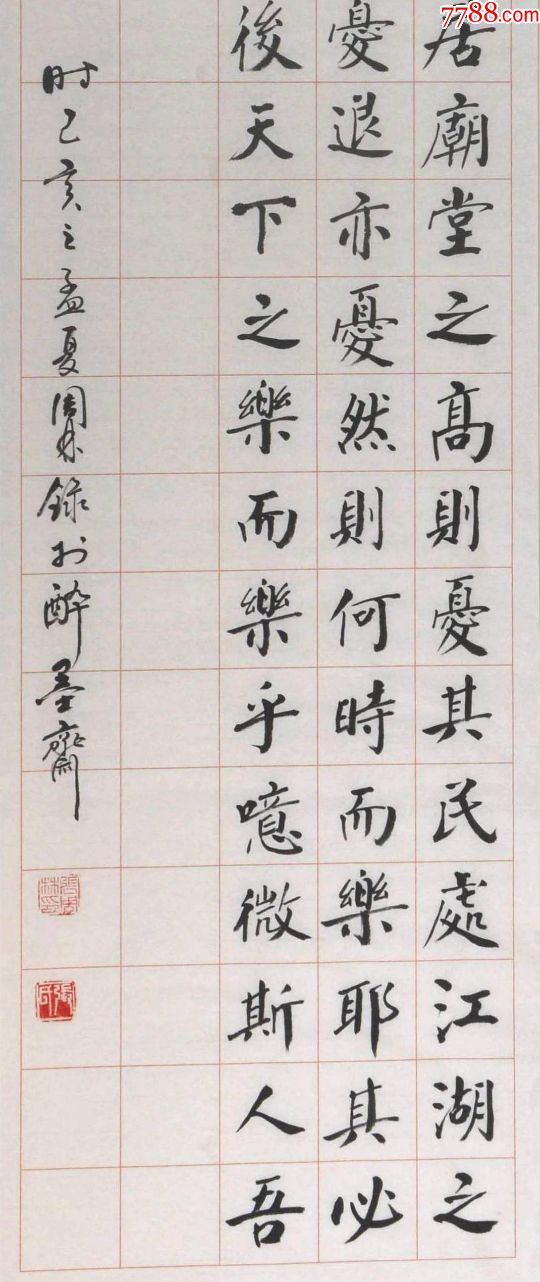 7788.com
居廟堂之高則憂其民處江湖之
憂退亦憂然則何時而樂耶其必
後天下之樂而樂乎噫微斯人吾
时己亥之孟夏周林錄於醉墨齋